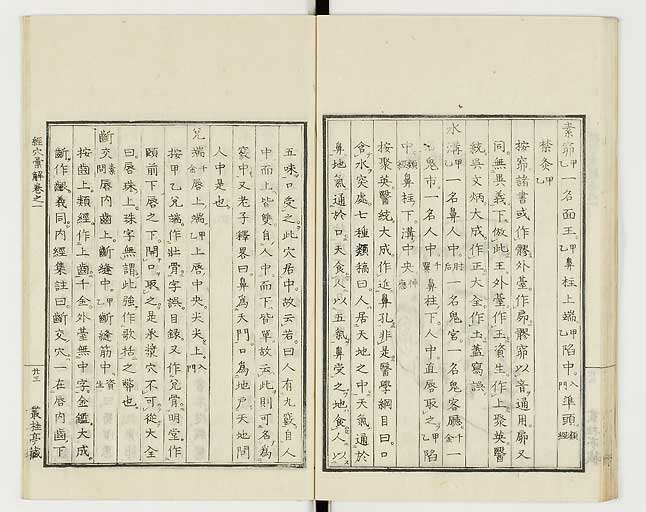 素窌甲乙一名面王乙甲鼻柱上端甲乙陷中入門準頭類經
禁灸甲乙
按窌諸書或作髎外臺作㕒髎窌以音通用㕒又
同無異義下做此王外臺作玉資生作上聚英醫
統吳文炳大成作正大全作土蓋寫誤
水溝甲乙一名鼻人中肘后一名鬼宮一名鬼客廳千金一
一名鬼市一名人中千翼鼻柱下人中直唇取之甲乙陷
中類經鼻柱下溝中央神應
按聚英醫統大成作近鼻孔非是醫學綱目曰口
含水突處七種類犒曰人居天地之中天氣通於
鼻地氣通於口天食人以五氣鼻受之地食人以
五味口受之此穴居中故云若曰人有九竅自人
中而上皆雙自人中而下皆單故云此則可名為
竅中又老子釋畧曰鼻為天門口為地戶天地間
人中是也
兌端千金唇上端甲乙上唇中央尖尖上入門
按甲乙兌端作壯骨字誤目錄又作兌骨明堂作
頤前下唇之下開口取之是承漿穴不可從大全
曰唇珠上珠字無謂此強作歌括之幣也
齗交素問唇內齒上齗縫中甲乙齗縫筋中資生
按齒上類經作上齒千金外臺無中字金鑑大成
齗作齦義同內經集註曰齗交穴一在唇內齒下
經穴彙解卷之一
廿三
叢桂亭藏